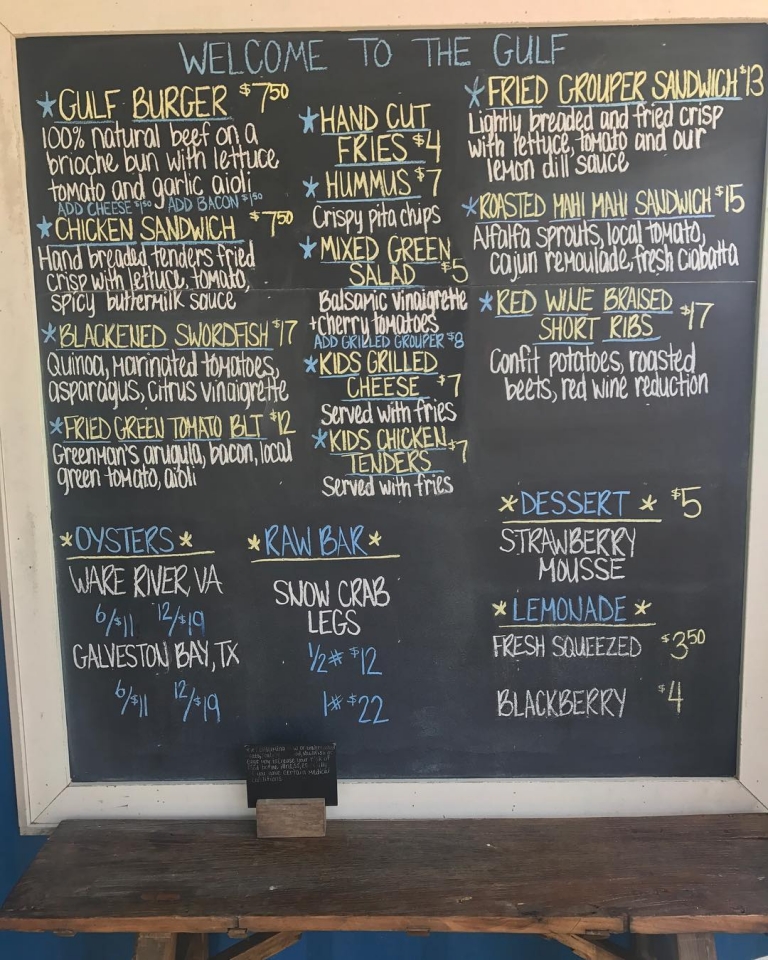 WELCOME TO THE GULF
GULF BURGER $7.50
100% natural beef on a
brioche bun with lettuce
tomato and garlic aioli
ADD CHEESE $1.50 ADD BACON $1.50
CHICKEN SANDWICH $7.50
Hand breaded tenders fried
crisp with lettuce, tomato,
spicy buttermilk sauce
BLACKENED SWORDFISH $17
Quinoa, marinated tomatoes,
asparagus, citrus vinaigrette
FRIED GREEN TOMATO BLT $12
Greenman's arugula, bacon, local
green tomato, aioli
HAND CUT
FRIES $4
HUMMUS $7
Crispy pita chips
MIXED GREEN
SALAD $5
Balsamic vinaigrette
+cherry tomatoes
ADD GRILLED GROUPER $8
KIDS GRILLED
CHEESE $7
Served with fries
KIDS CHICKEN
TENDERS $7
Served with fries
FRIED GROUPER SANDWICH $13
Lightly breaded and fried crisp
with lettuce, tomato and our
lemon dill sauce
ROASTED MAHI MAHI SANDWICH $15
Alfalfa sprouts, local tomato,
cajun remoulade, fresh ciabatta
RED WINE BRAISED
SHORT RIBS $17
Confit potatoes, roasted
beets, red wine reduction
OYSTERS
WARE RIVER, VA
6/$11 12/$19
GALVESTON BAY, TX
6/$11 12/$19
RAW BAR
SNOW CRAB
LEGS
1/2# $12
1# $22
DESSERT $5
STRAWBERRY
MOUSSE
LEMONADE
FRESH SQUEEZED $3.50
BLACKBERRY $4